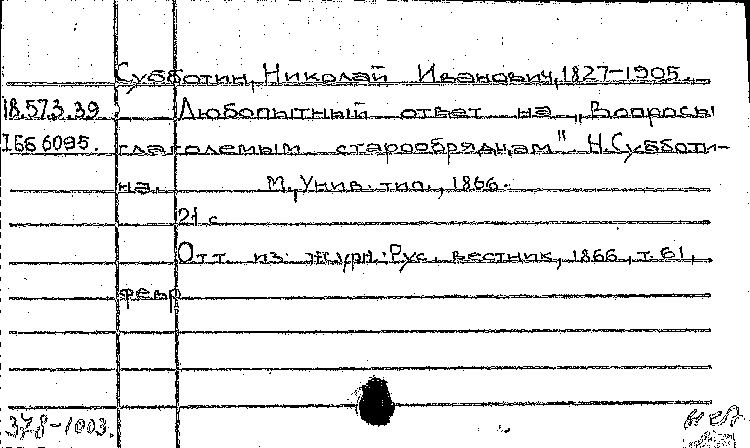 Субботин, Николай Иванович, 1827-1905.
18.573.39 Любопытный ответ на „Вопросы
I66 6095. глаголемым старообрядцам" Н.Субботи-
на. М., Унив. тип., 1866.
21 с.
Отт. из журн. Рус. вестник, 1866, т. 61,
февр
378-1003.